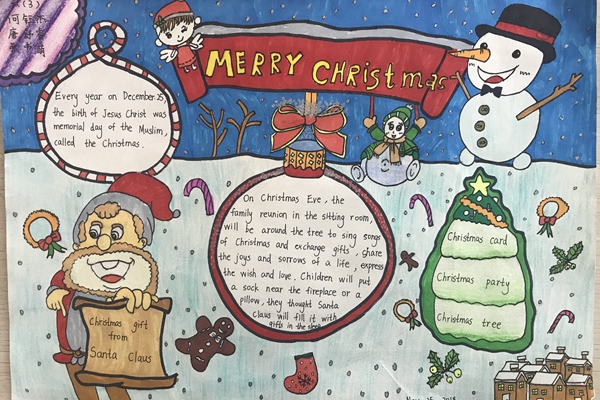 (3)
MERRY CHRistmas
Every year on December 25,
the birth of Jesus Christ was
memorial day of the Muslim,
called the Christmas.
On Christmas Eve, the
family reunion in the sitting room,
will be around the tree to sing songs
of Christmas and exchange gifts, share
the joys and sorrows of a life, express
the wish and love. Children will put
a sock near the fireplace or a
pillow, they thought Santa
Claus will fill it with
gifts in the sleep
Christmas card
Christmas party
Christmas tree
Christmas gift
from
Santa Claus